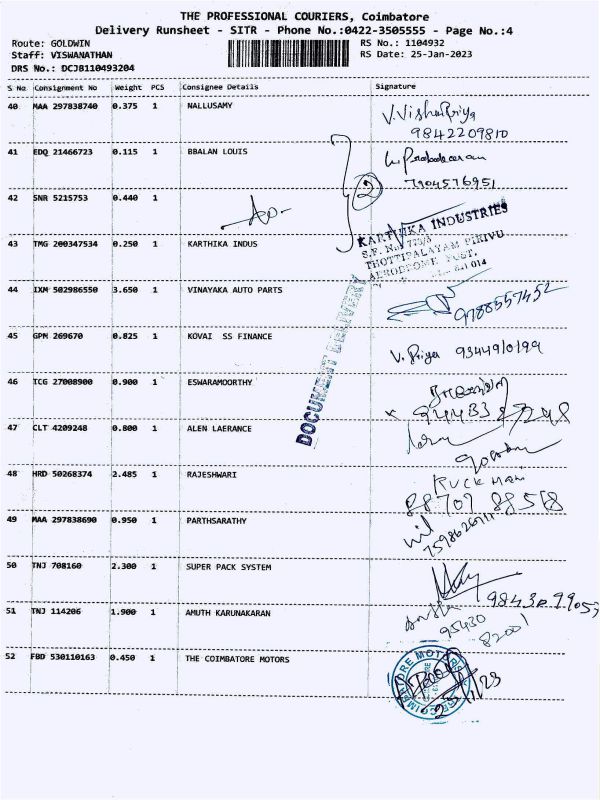 THE PROFESSIONAL COURIERS, Coimbatore
Delivery Runsheet - SITR - Phone No.:0422-3505555 - Page No.:4
Route: GOLDWIN
RS No.: 1104932
Staff: VISWANATHAN
RS Date: 25-Jan-2023
DRS No.: DCJB110493204
S No Consignment No Weight PCS Consignee Details Signature
40 MAA 297838740 0.375 1 NALLUSAMY
V.VishnuPriya
9842209810
41 EDQ 21466723 0.115 1 BBALAN LOUIS
7904576951
2
42 SNR 5215753 0.440 1
KARTHIKA INDUSTRIES
S.F. No.
THOTTIPALAYAM PIRIVU
AERODROME POST,
014
43 TMG 200347534 0.250 1 KARTHIKA INDUS
44 IXM 502986550 3.650 1 VINAYAKA AUTO PARTS
9788557452
DOCUMENT DELIVERY
45 GPM 269670 0.825 1 KOVAI SS FINANCE
V. Priya 9344910199
46 ICG 27008900 0.900 1 ESWARAMOORTHY
47 CLT 4209248 0.800 1 ALEN LAERANCE
48 HRD 50268374 2.485 1 RAJESHWARI
RUCKMANI
88707 88568
49 MAA 297838690 0.950 1 PARTHSARATHY
50 TNJ 708160 2.300 1 SUPER PACK SYSTEM
51 TNJ 114206 1.900 1 AMUTH KARUNAKARAN
95430
82001
52 FBD 530110163 0.450 1 THE COIMBATORE MOTORS
25/1/23